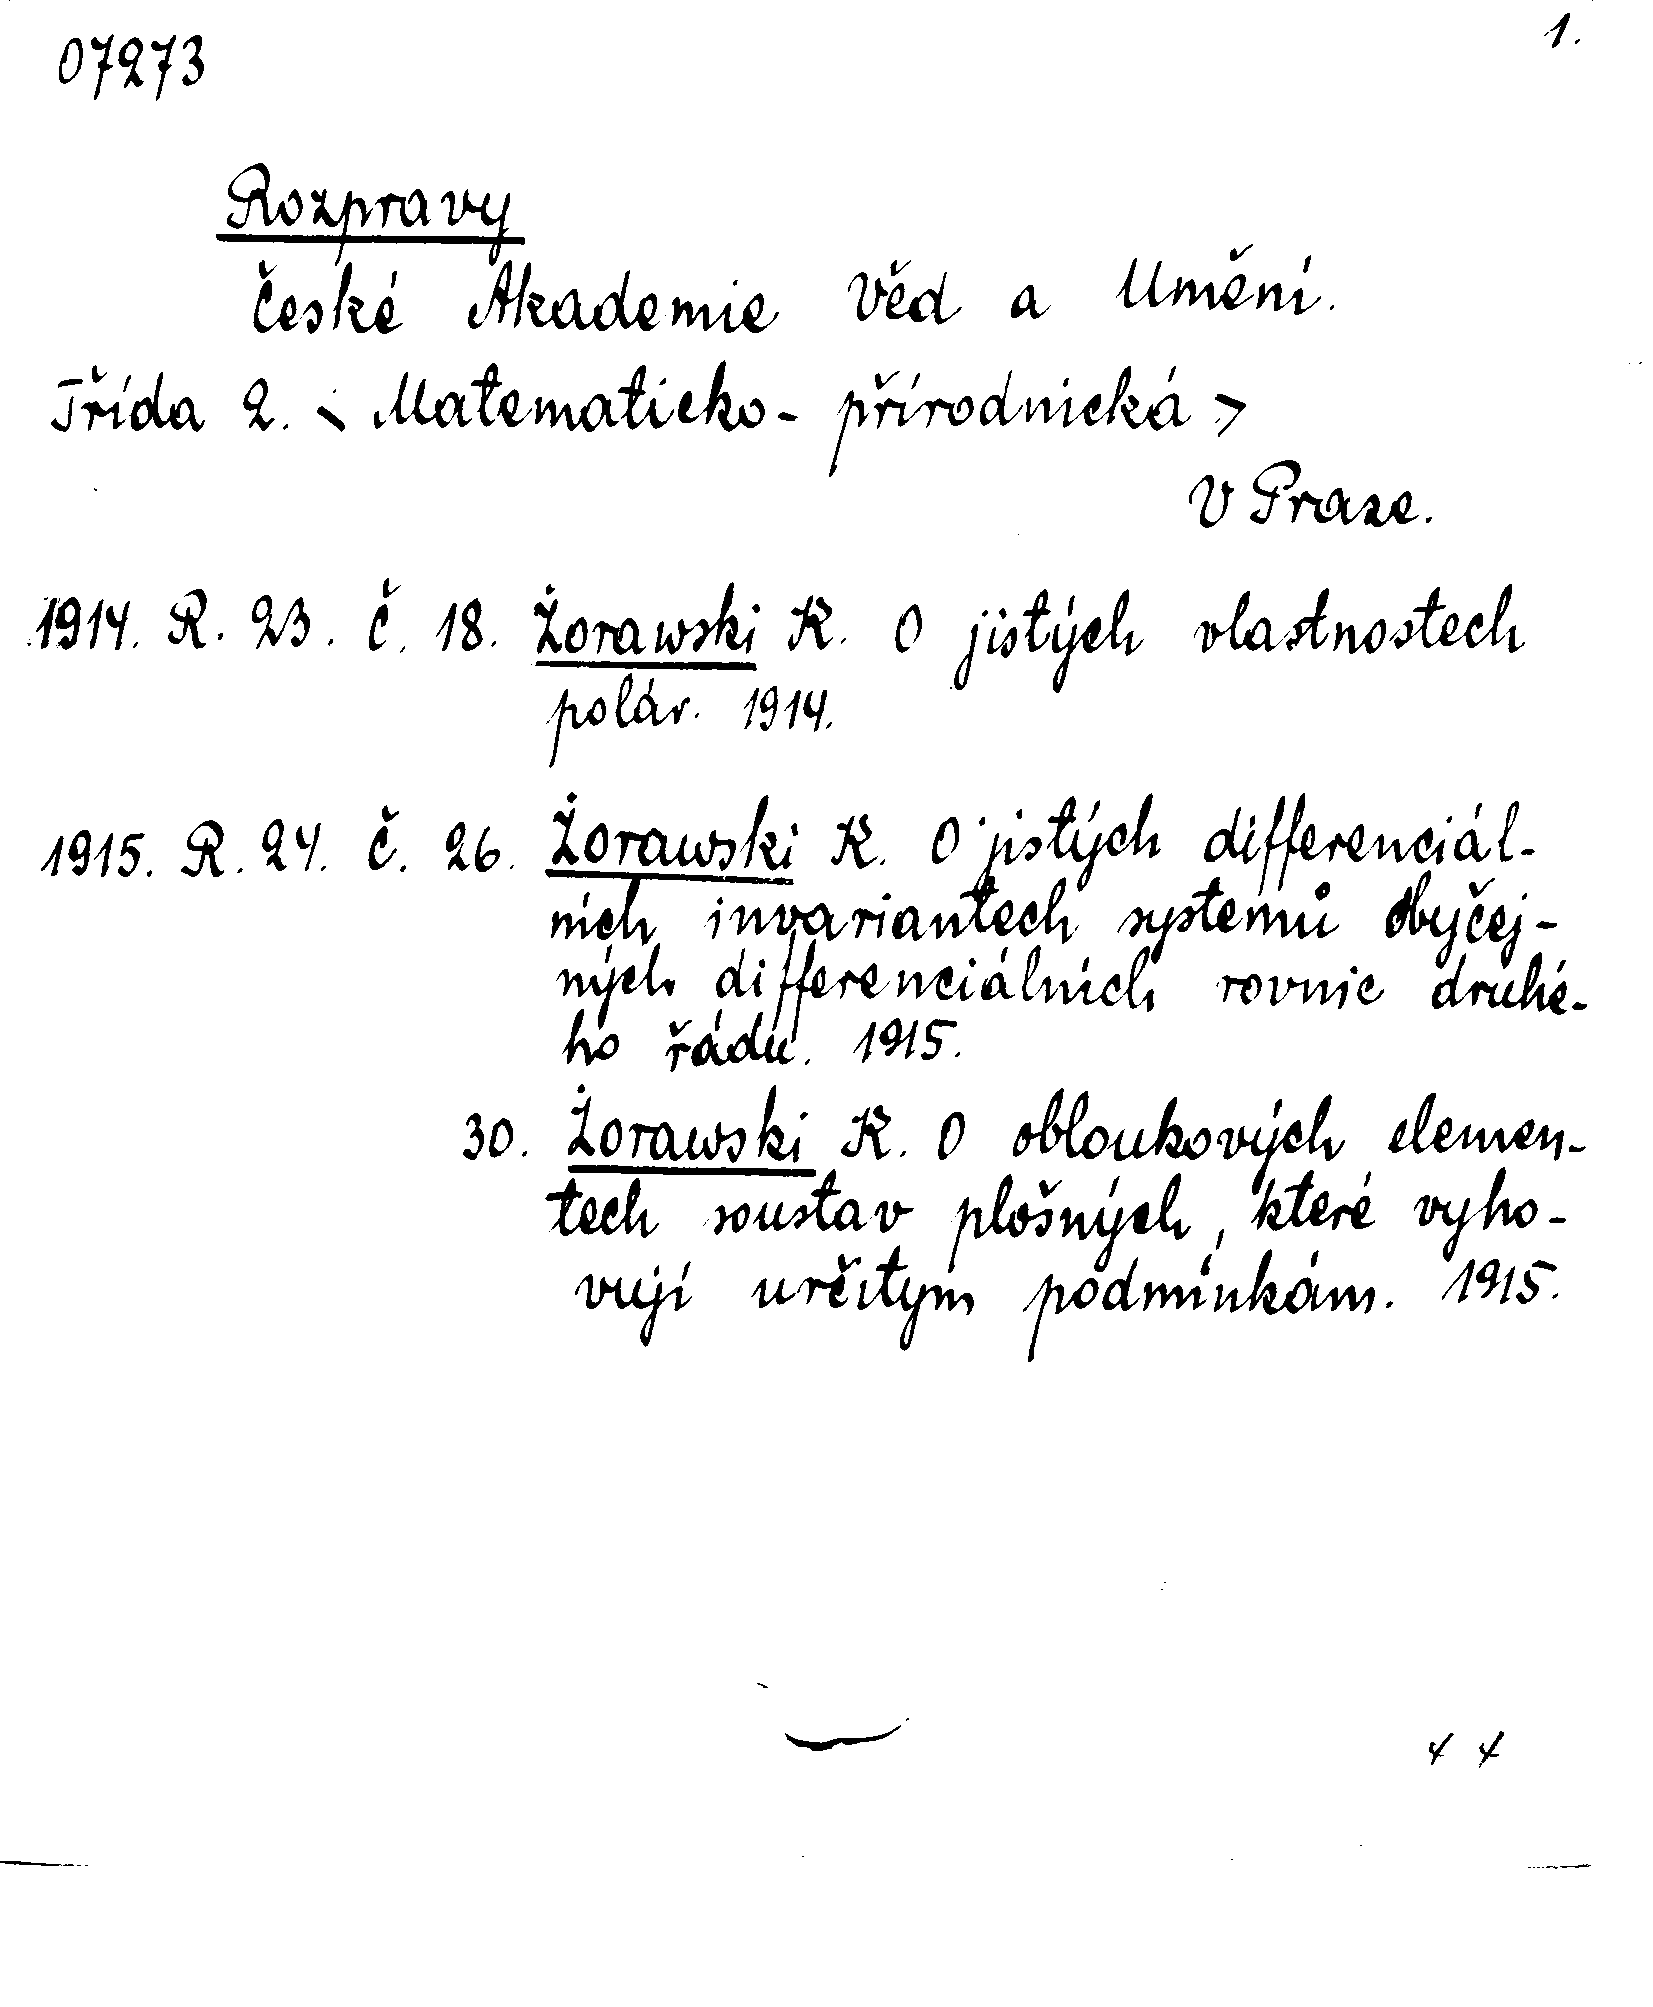 07273
1.
Rozpravy
České Akademie Věd a Umění.
Třída 2. < Matematicko-přírodnická >
V Praze.
1914. R. 23. č. 18. Żorawski K. O jistých vlastnostech
polár. 1914.
1915. R. 24. č. 26. Żorawski K. O jistých differenciál-
ních invariantech systemů obyčej-
ných differenciálních rovnic druhé-
ho řádu. 1915.
30. Żorawski K. O obloukových elemen-
tech soustav plošných, které vyho-
vují určitym podmínkám. 1915.